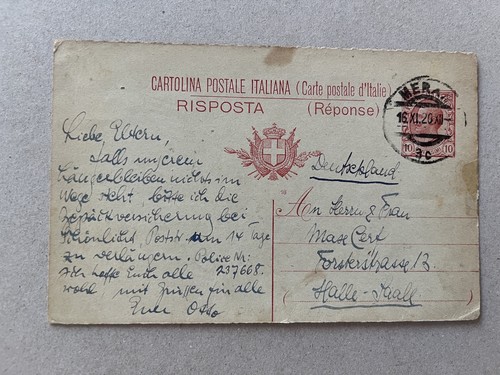 CARTOLINA POSTALE ITALIANA (Carte postale d'Italie)
RISPOSTA (Réponse)
MERA
16.XI.20.XII
10 10
Liebe Eltern,
Falls unserem
Längerbleiben nichts im
Wege steht bitte ich die
Gepäckversicherung bei
Poststr. um 14 Tage
zu verlängern. Police Nr:
237668.
Ich hoffe Euch alle
wohl, mit Grüssen für alle
Euer Otto
Deutschland
An Herrn & Frau
Max Cert
Forsterstrasse 13
Halle-Saale